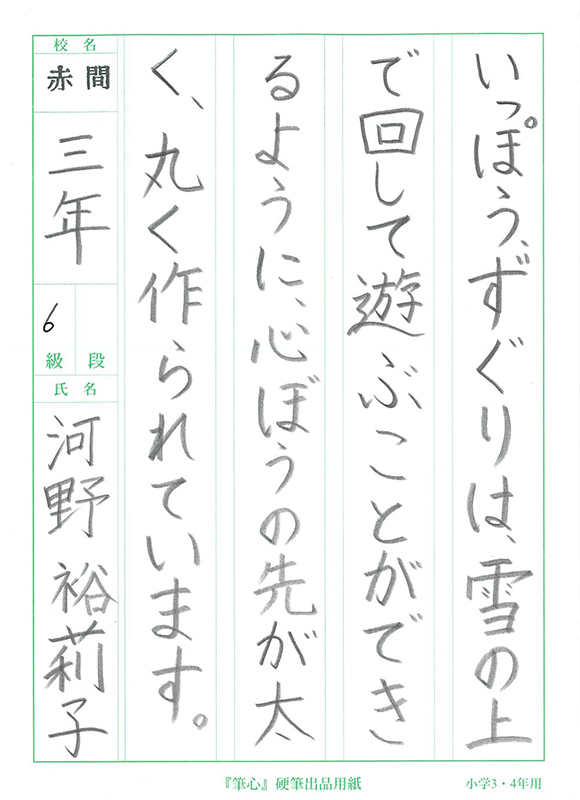 いっぽう、ずぐりは、雪の上
で回して遊ぶことができ
るように、心ぼうの先が太
く、丸く作られています。
校名
赤間
三年
6
級 段
氏名
河野 裕莉子
『筆心』硬筆出品用紙
小学3・4年用